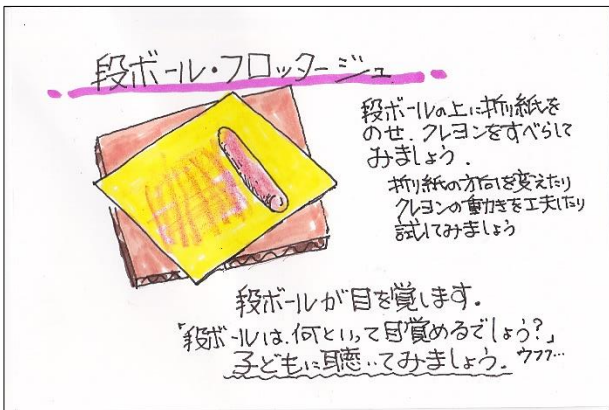 段ボール・フロッタージュ
段ボールの上に折り紙を
のせ、クレヨンをすべらして
みましょう。
折り紙の方向を変えたり
クレヨンの動きを工夫したり
試してみましょう
段ボールが目を覚します。
「段ボールは、何といって目覚めるでしょう?」
子どもに聴いてみましょう。ウフフ…